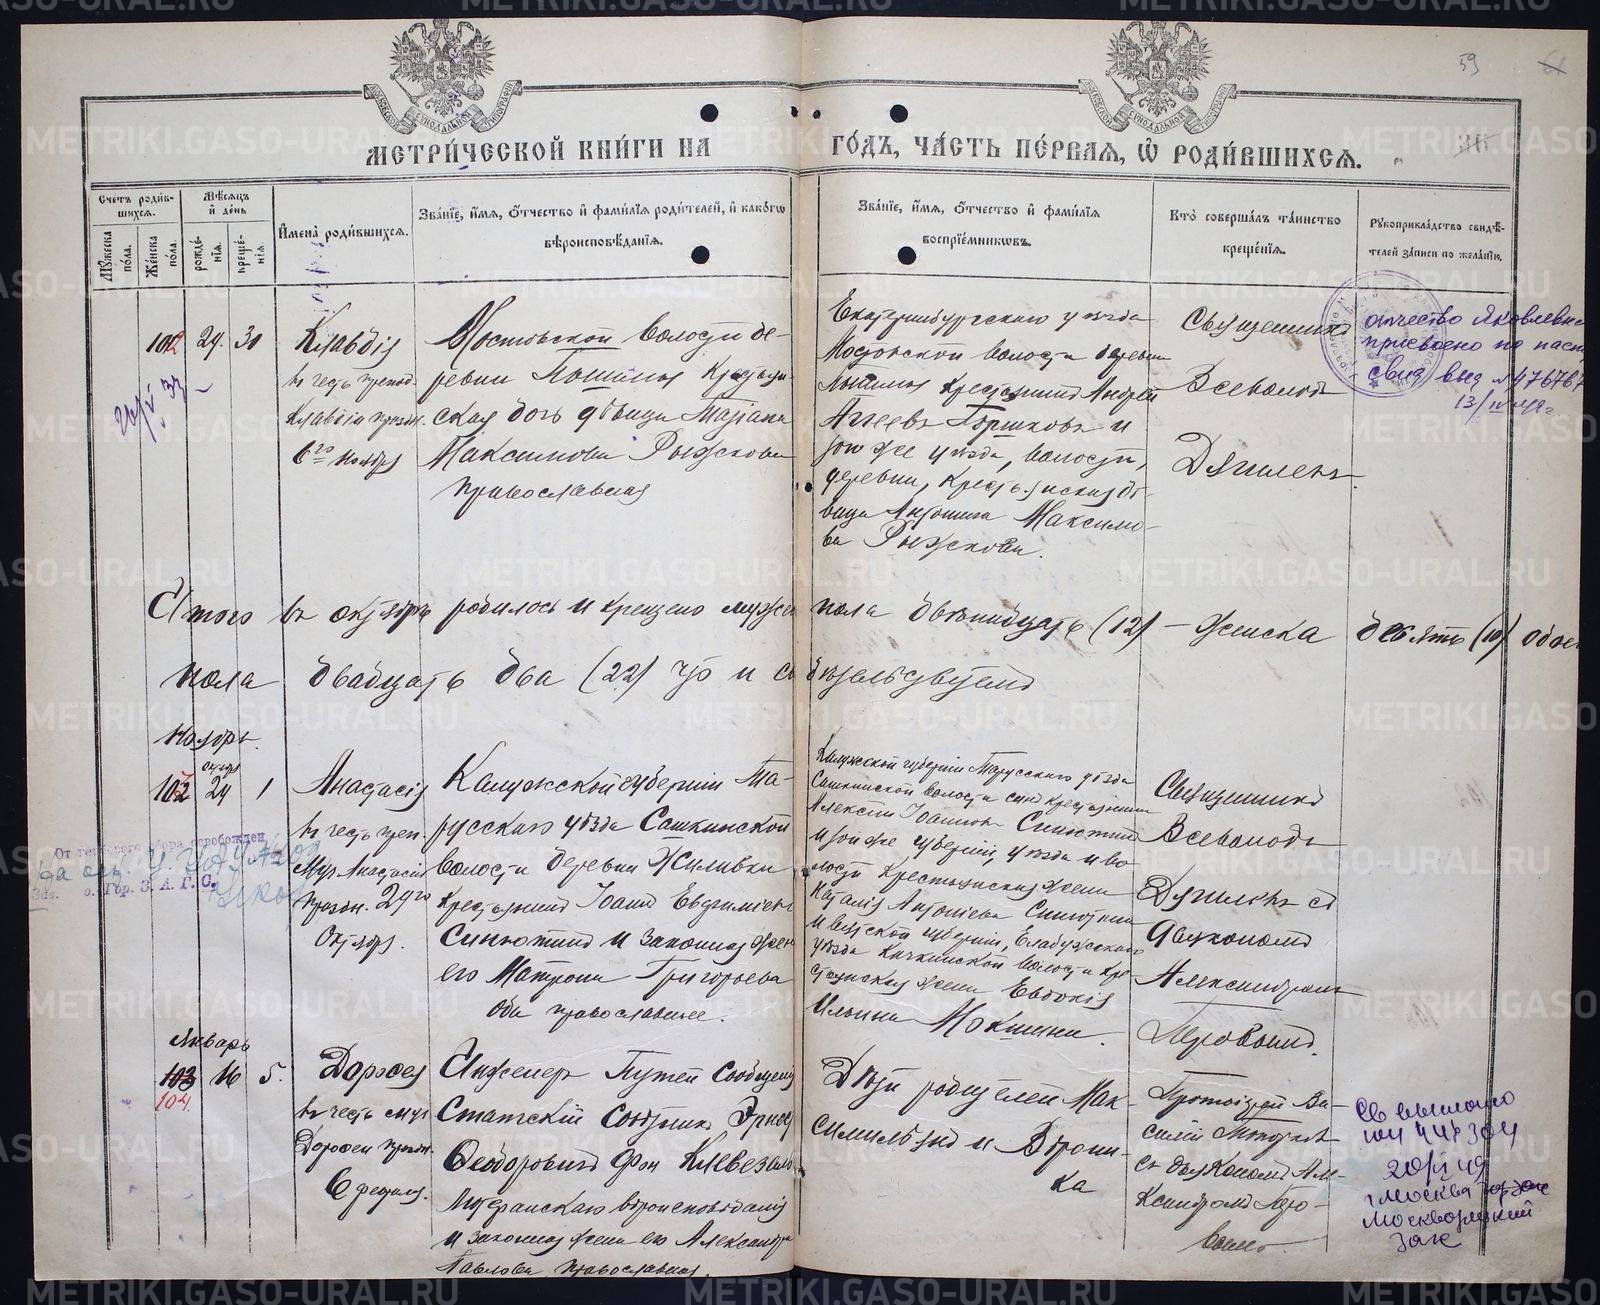 МЕТРИ́ЧЕСКОЙ КНИ́ГИ НА ГО́ДЪ, ЧА́СТЬ ПЕ́РВАЯ, Ѡ҆ РОДИ́ВШИХСЯ.
59
Счетъ роди́вшихся.
Му́жеска по́ла.
Же́нска по́ла.
Мѣ́сяцъ и҆ де́нь
рожде́нїя.
креще́нїя.
И҆мена̀ роди́вшихся.
Зва́нїе, и҆́мя, ѻ҆́тчество и҆ фами́лїя роди́телей, и҆ како́гѡ вѣроисповѣ́данїя.
Зва́нїе, и҆́мя, ѻ҆́тчество и҆ фами́лїя воспрїе́мникѡвъ.
Кто̀ соверша́лъ та́инство креще́нїя.
Рꙋкоприкла́дство свидѣ́телей за́писи по жела́нїю.
102 29. 30
Клавдія
въ честь препод.
Клавдіи празн.
6го ноября
Мостовской волости де-
ревни Мостовской крестьян-
ская дочь дѣвица Маріанна
Максимова Рыжкова
православная
Екатеринбургскаго уѣзда
Мостовской волости деревни
крестьянинъ Андрей
Агѣевъ Горшковъ и
той же уѣзда, волости,
деревни, крестьянская дѣ-
вица Антонина Максимо-
ва Рыжкова.
Священникъ
Всеволодъ
Дягилевъ.
отчество Яковлевна
присвоено по пасп
свид выд № 476767
Итого въ октябрѣ родилось и крещено мужеск пола двѣнадцать (12) – женска десять (10) обоего
пола двадцать два (22) что и свидѣтельствуемъ
Ноябрь.
октяб
24 1
Анастасія
въ честь преп.
муч Анастасіи
празн. 29го
Октября.
Калужской губерніи Та-
русскаго уѣзда Сашкинской
волости деревни Жиливки
крестьянинъ Іоаннъ Евфиміевъ
Синютинъ и законная жена
его Матрона Григорьева
оба православные.
Калужской губерніи Тарусскаго уѣзда
Сашкинской волости сынъ крестьянина
Алексѣй Іоанновъ Синютинъ
и той же губерніи, уѣзда и во-
лости крестьянская жена
Наталія Антоніева Синютина
и Вятской губерніи, Елабужскаго
уѣзда Кичкинской волости кре-
стьянская жена Евдокія
Ильина Мокшина.
Священникъ
Всеволодъ
Дягилевъ съ
діакономъ
Александромъ
Перовымъ.
От гербового сбора освобожден
Гор. З. А. Г. С.
Январь
103 16 5.
104.
Дорофей
въ честь муч
Дорофея празн.
6 февраля.
Инженеръ Путей Сообщенія
Статскій Совѣтникъ Эрнстъ
Ѳеодоровичъ фон Клевезаль
лютеранскаго вѣроисповѣданія
и законная жена его Александра
Павлова православная.
Дѣти родителей Мак-
симильянъ и Верони-
ка
Протоіерей Ва-
силій
съ діакономъ Але-
ксандромъ Перо-
вымъ.
Св выслано
20/II 49
г Москва
Москворецкий
загс
METRIKI.GASO-URAL.RU